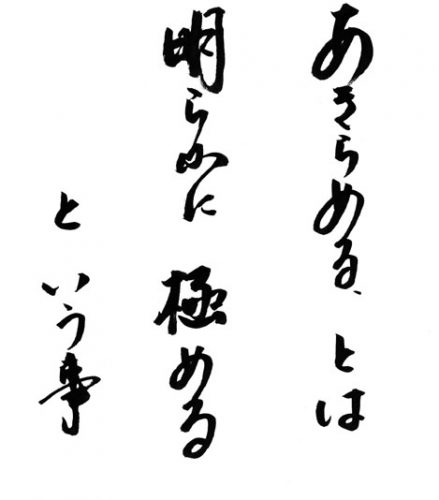 あきらめる、とは
明らかに 極める
と いう事